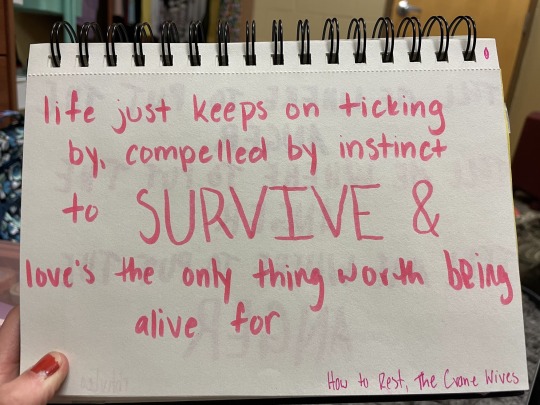 life just keeps on ticking
by, compelled by instinct
to SURVIVE &
love's the only thing worth being
alive for
How to Rest, The Crane Wives